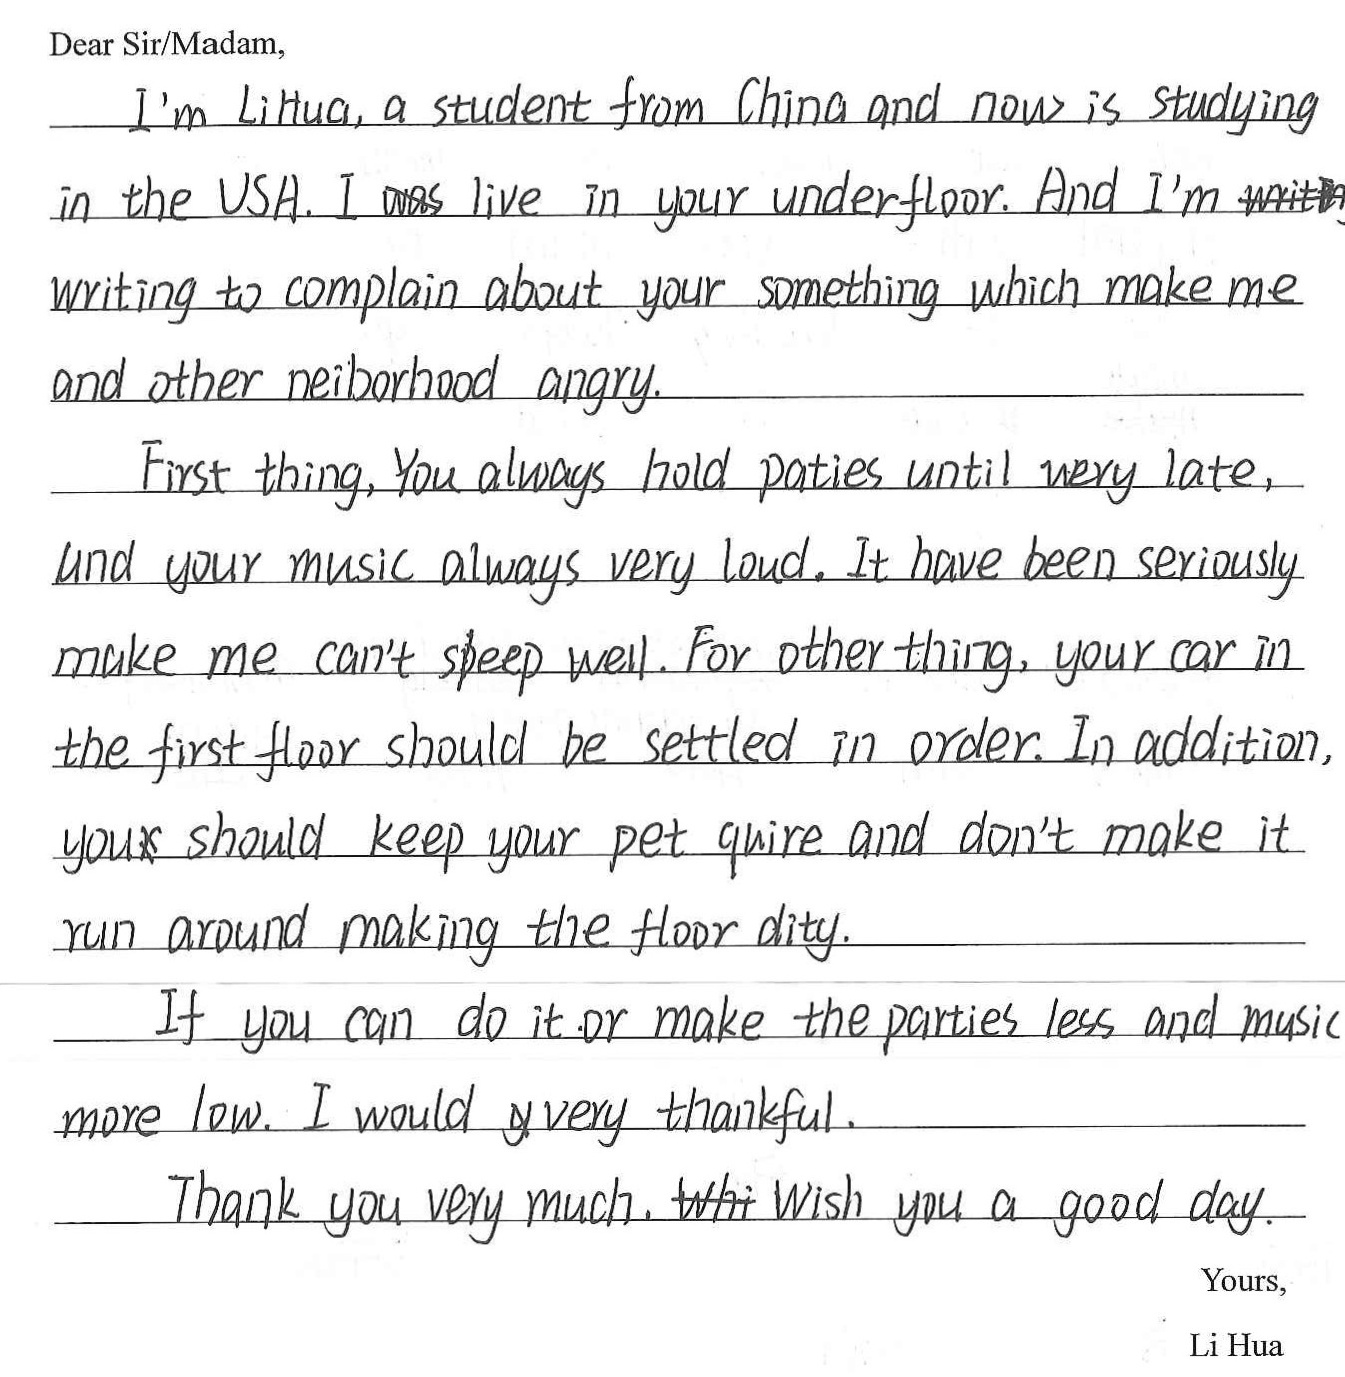 Dear Sir/Madam,
I'm Li Hua, a student from China and now is studying
in the USA. I was live in your underfloor. And I'm
writing to complain about your something which make me
and other neiborhood angry.
First thing, You always hold paties until very late,
and your music always very loud. It have been seriously
make me can't sleep well. For other thing, your car in
the first floor should be settled in order. In addition,
you should keep your pet quire and don't make it
run around making the floor dity.
If you can do it or make the parties less and music
more low. I would very thankful.
Thank you very much. Wish you a good day.
Yours,
Li Hua